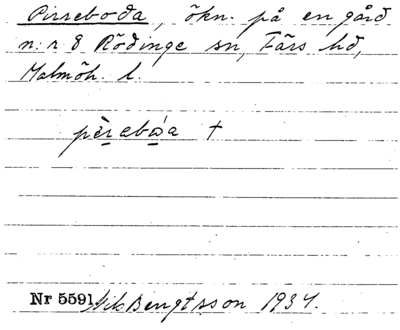 Pirreboda, ökn. på en gård
n:r 8 Rödinge sn, Färs hd,
Malmöh. l.
pèrebóa +
Nr 5591 Nils Bengtsson 1934.